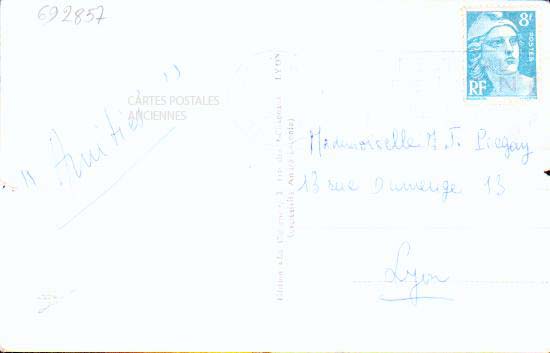 692857
8F
POSTES
RF
LYON
CARTES POSTALES
ANCIENNES
" Amitiés "
Mademoiselle M. J. Piegay
13 rue Dumenge 13
Lyon